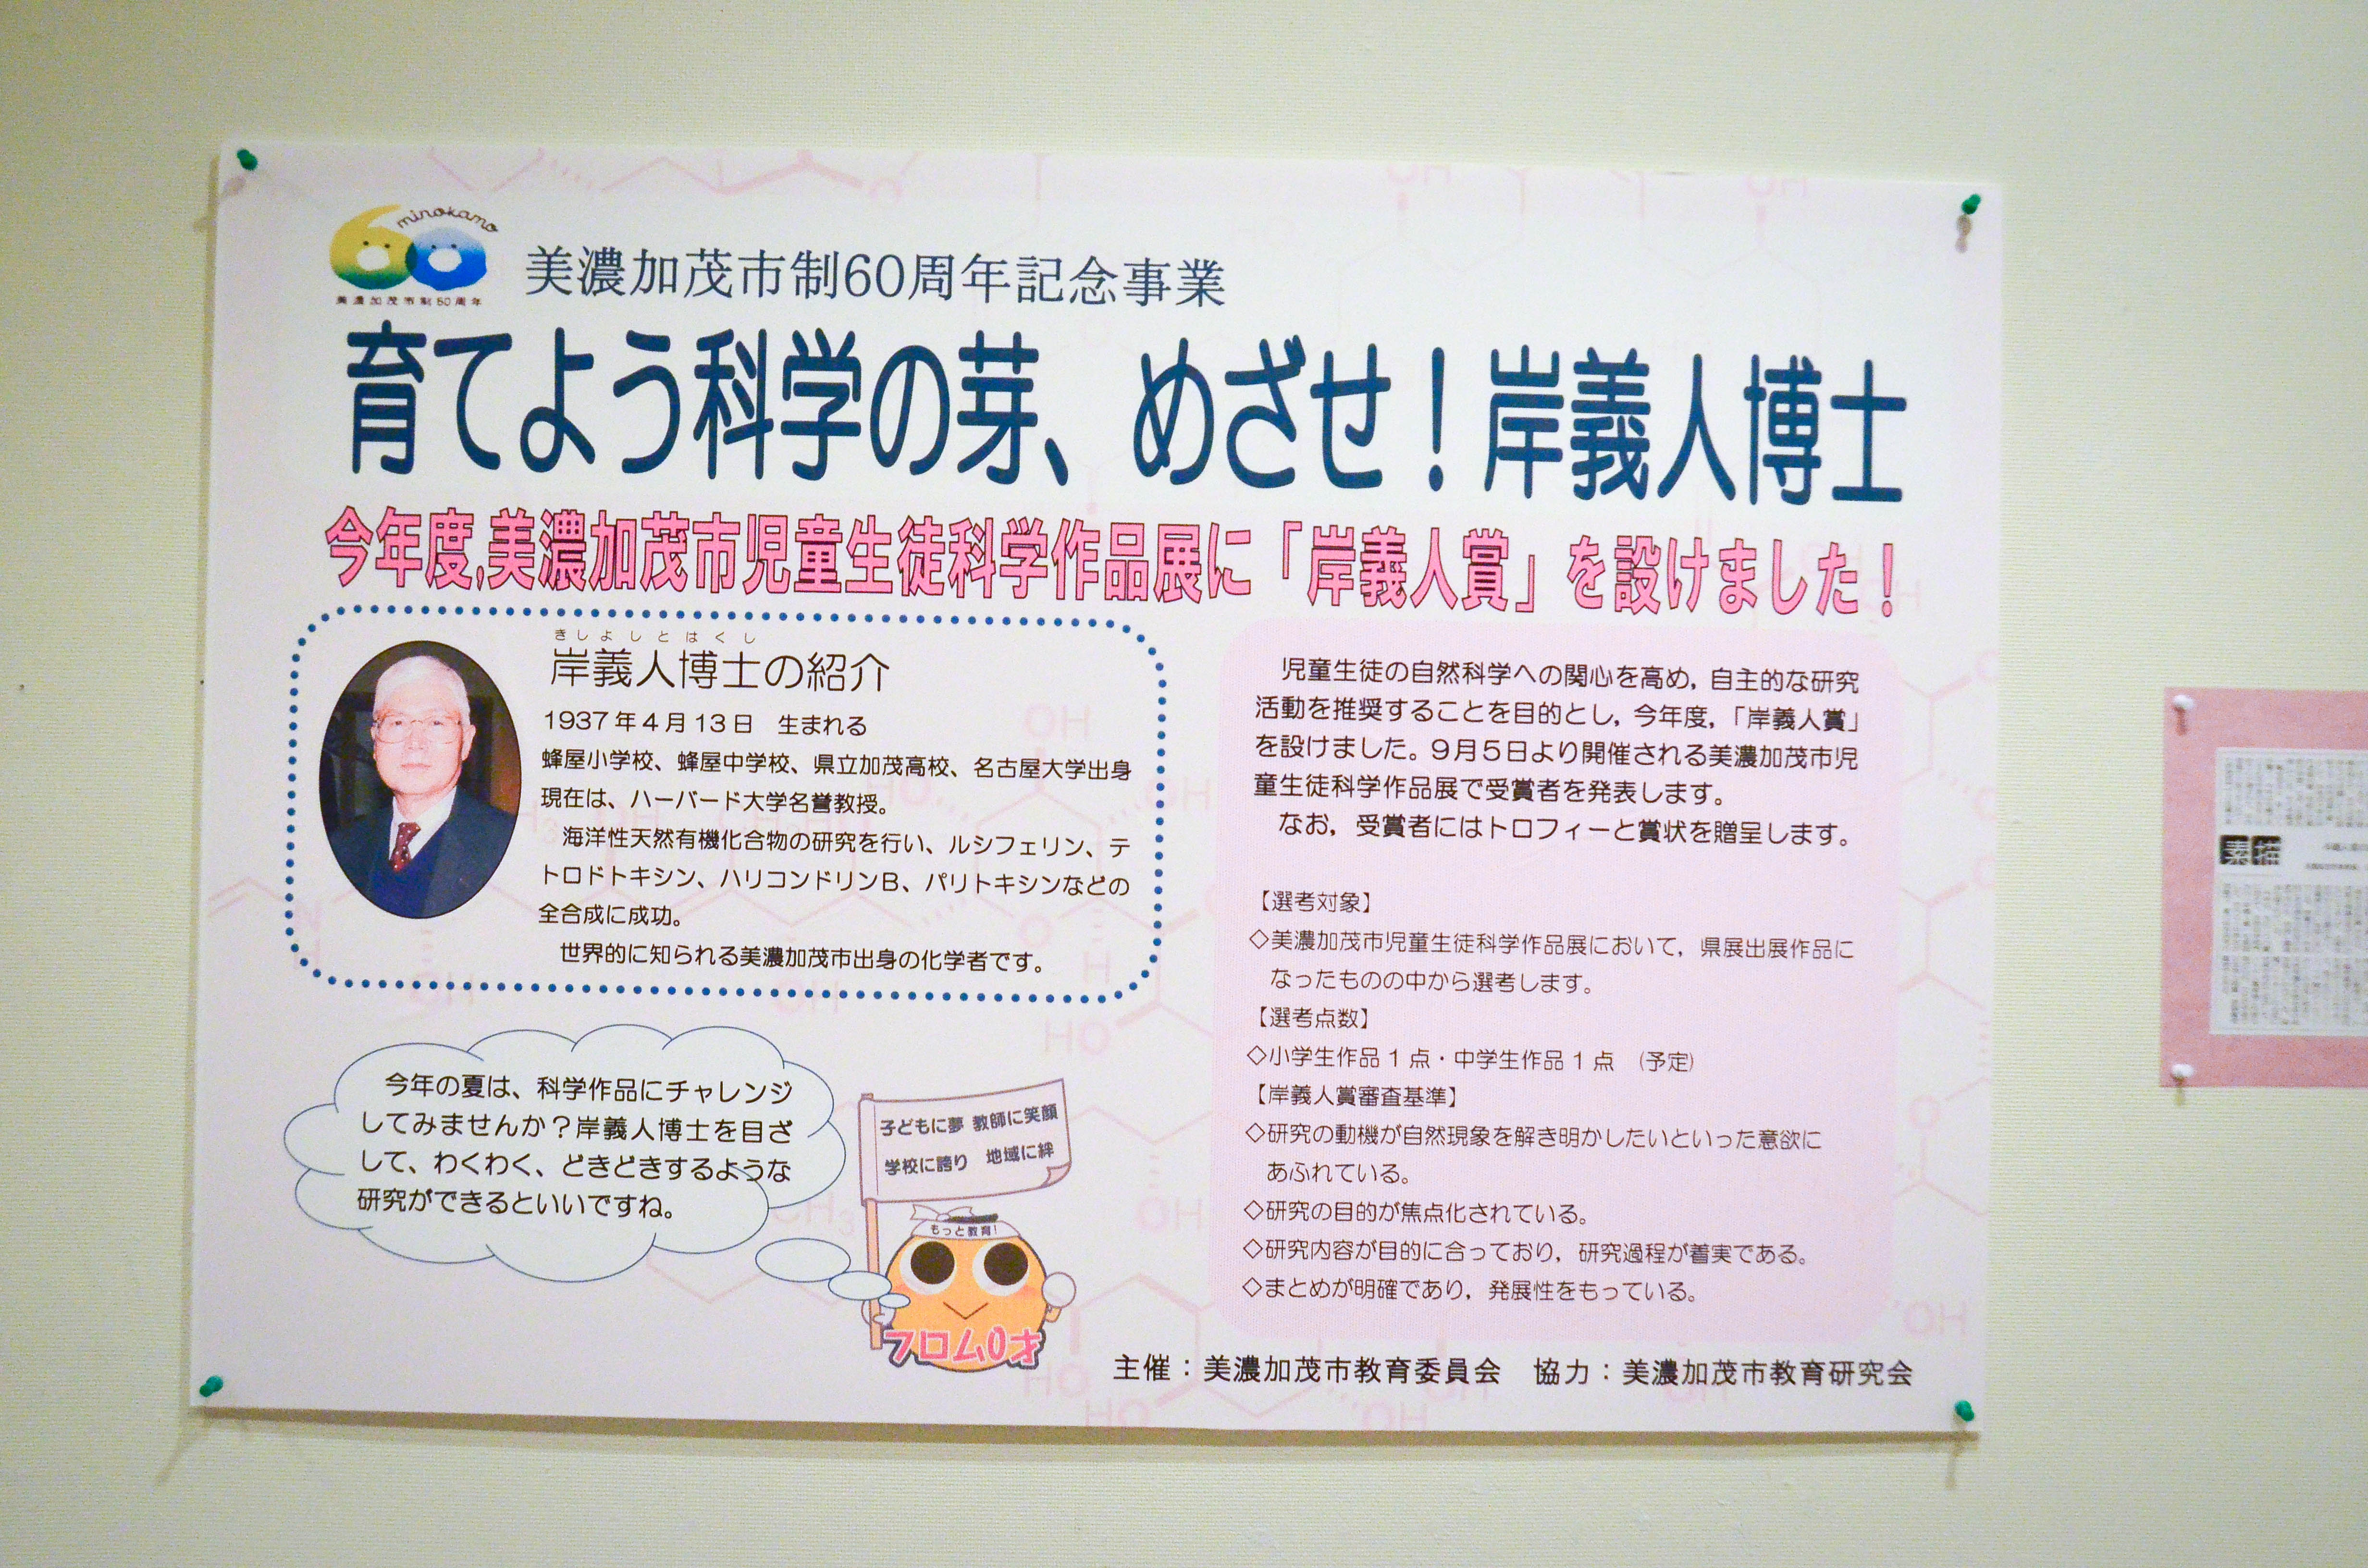 minokamo
美濃加茂市制60周年
美濃加茂市制60周年記念事業
育てよう科学の芽、めざせ！岸義人博士
今年度,美濃加茂市児童生徒科学作品展に「岸義人賞」を設けました！
きしよしとはくし
岸義人博士の紹介
1937年4月13日　生まれる
蜂屋小学校、蜂屋中学校、県立加茂高校、名古屋大学出身
現在は、ハーバード大学名誉教授。
海洋性天然有機化合物の研究を行い、ルシフェリン、テ
トロドトキシン、ハリコンドリンB、パリトキシンなどの
全合成に成功。
世界的に知られる美濃加茂市出身の化学者です。
今年の夏は、科学作品にチャレンジ
してみませんか？岸義人博士を目ざ
して、わくわく、どきどきするような
研究ができるといいですね。
子どもに夢 教師に笑顔
学校に誇り 地域に絆
もっと教育！
フロム0才
児童生徒の自然科学への関心を高め，自主的な研究
活動を推奨することを目的とし，今年度，「岸義人賞」
を設けました。9月5日より開催される美濃加茂市児
童生徒科学作品展で受賞者を発表します。
なお，受賞者にはトロフィーと賞状を贈呈します。
【選考対象】
◇美濃加茂市児童生徒科学作品展において，県展出展作品に
なったものの中から選考します。
【選考点数】
◇小学生作品1点・中学生作品1点　（予定）
【岸義人賞審査基準】
◇研究の動機が自然現象を解き明かしたいといった意欲に
あふれている。
◇研究の目的が焦点化されている。
◇研究内容が目的に合っており，研究過程が着実である。
◇まとめが明確であり，発展性をもっている。
主催：美濃加茂市教育委員会　協力：美濃加茂市教育研究会
素描